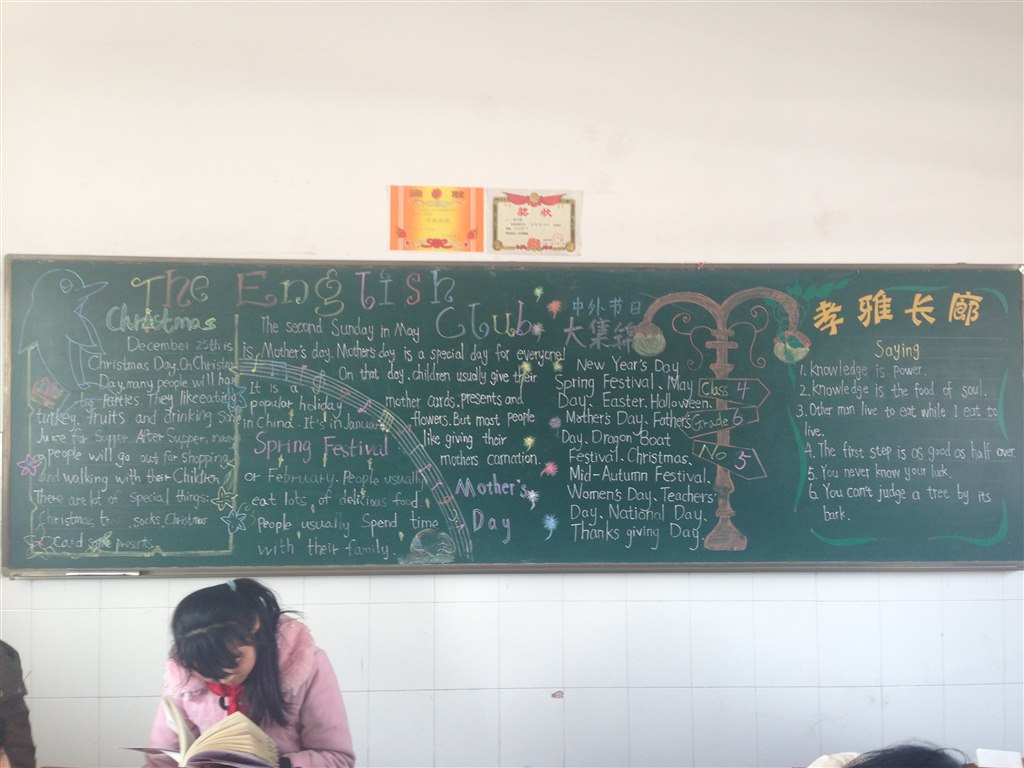 奖状
The English Club
Christmas
December 25th is
Christmas Day. On Christm
Day, many people will ha
Parties. They like eating
turkey, fruits and drinking
Juice for Supper. After Supper, many
people will go out for shopping
and walking with their Children
There are lot of Special things:
Christmas tr socks, Christmas
Card presents.
The second Sunday in May
is Mother's day. Mother's day is a special day for everyone!
On that day, children usually give their
mother cards, presents and
flowers. But most people
like giving their
mothers carnation.
Mother's
Day
It is a
popular holiday
in China. It's in January
Spring Festival
or February. People usually
eat lots of delicious food.
People usually Spend time
with their family.
中外节日
大集锦
New Year's Day
Spring Festival. May
Day. Easter. Halloween.
Mother's Day. Father's
Day. Dragon Boat
Festival. Christmas.
Mid-Autumn Festival.
Women's Day. Teachers'
Day. National Day.
Thanks giving Day.
Class 4
Grade 6
No 5
孝雅长廊
Saying
1. knowledge is power.
2. knowledge is the food of soul.
3. Other man live to eat while I eat to
live.
4. The first step is as good as half over
5. You never know your luck.
6. You can't judge a tree by its
bark.